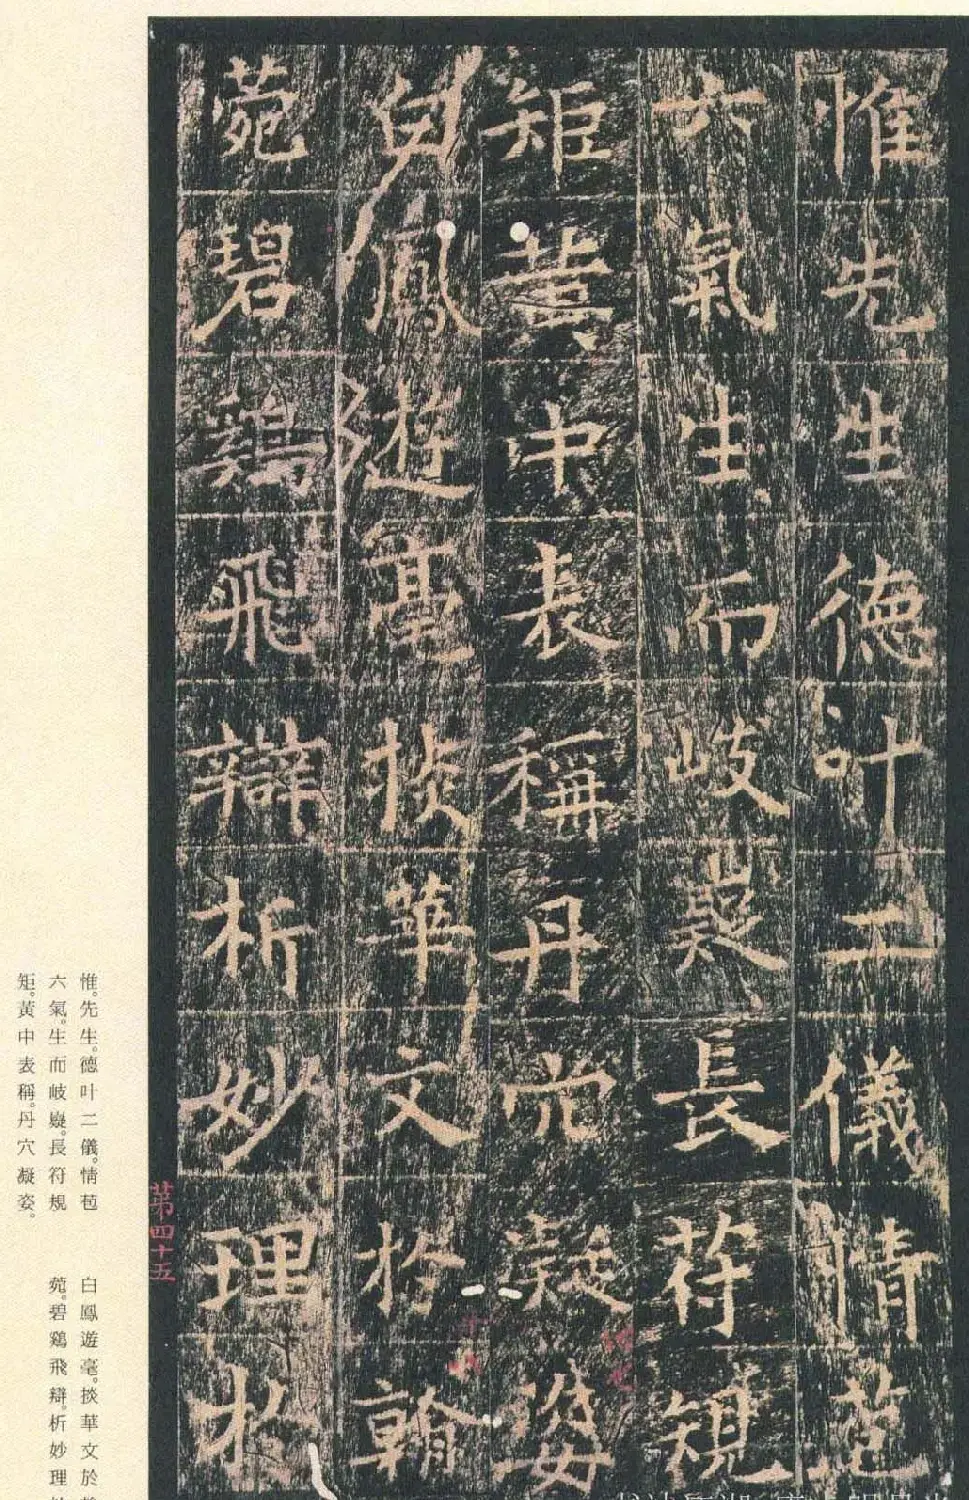 惟先生德叶二儀情苞
六氣生而岐嶷長符規
矩黃中表稱丹穴凝姿
白鳳遊毫掞華文於翰
苑碧鷄飛辯析妙理於
第四十五
惟。先生。德叶二儀。情苞
六氣。生而岐嶷。長符規
矩。黃中表稱。丹穴凝姿。
白鳳遊毫。掞華文於
苑。碧鷄飛辯。析妙理